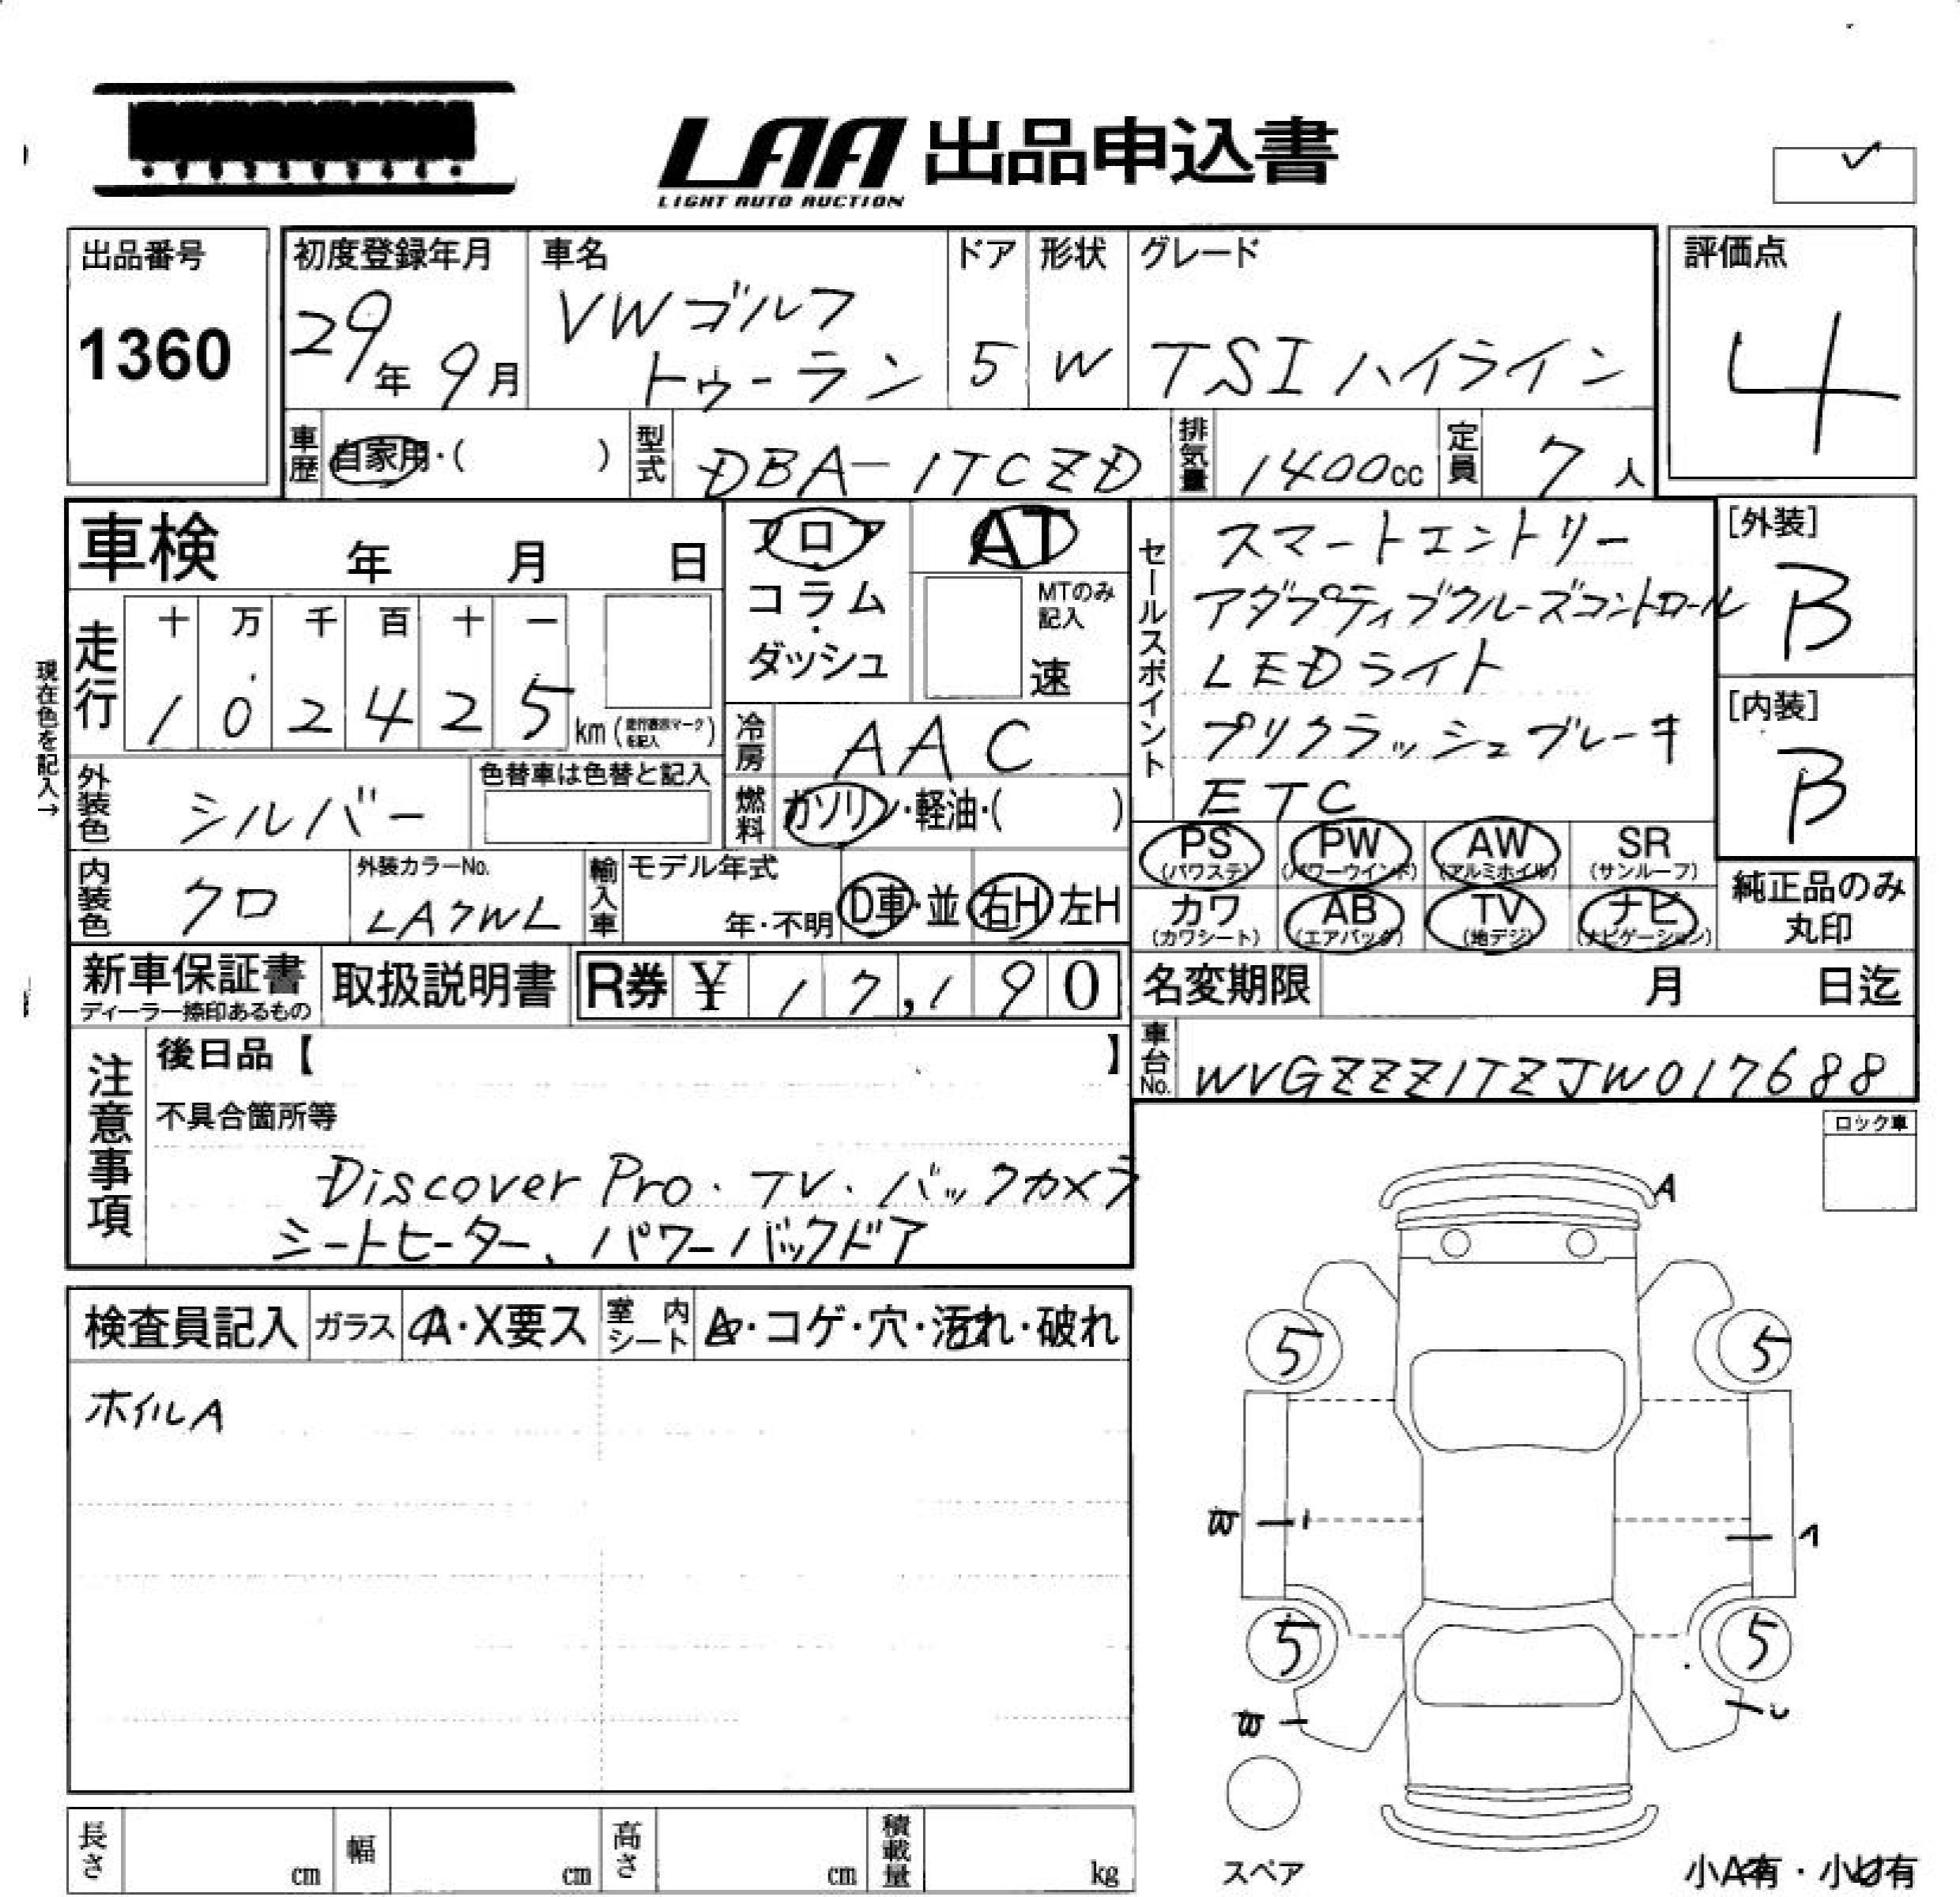 LAA 出品申込書
LIGHT AUTO AUCTION
出品番号
1360
初度登録年月
29年 9月
車名
VWゴルフ
トゥーラン
ドア
5
形状
W
グレード
TSI ハイライン
評価点
4
車歴
自家用・( )
型式
DBA-1TCZD
排気量
1400cc
定員
7人
車検 年 月 日
フロア
コラム
・
ダッシュ
AT
MTのみ
記入
速
セールスポイント
スマートエントリー
アダプティブクルーズコントロール
LEDライト
プリクラッシュブレーキ
ETC
[外装]
B
[内装]
B
現在色を記入→
走行
十 万 千 百 十 一
1 0 2 4 2 5 km (走行表示マークを記入)
冷房
AAC
外装色
シルバー
色替車は色替と記入
燃料
ガソリン・軽油・( )
PS
(パワステ)
PW
(パワーウインド)
AW
(アルミホイル)
SR
(サンルーフ)
内装色
クロ
外装カラーNo.
LA7WL
輸入車
モデル年式
年・不明
D車・並
右H 左H
カワ
(カワシート)
AB
(エアバッグ)
TV
(地デジ)
ナビ
(ナビゲーション)
純正品のみ
丸印
新車保証書
ディーラー捺印あるもの
取扱説明書
R券 ¥ 17,190
名変期限 月 日迄
車台No.
WVGZZZ1TZJW017688
注意事項
後日品【 】
不具合箇所等
Discover Pro・TV・バックカメラ
シートヒーター、パワーバックドア
ロック車
A
検査員記入
ガラス
A・X要ス
室内シート
A・コゲ・穴・汚れ・破れ
ホイルA
5 5
5 5
スペア
長さ cm
幅 cm
高さ cm
積載量 kg
小A有・小U有